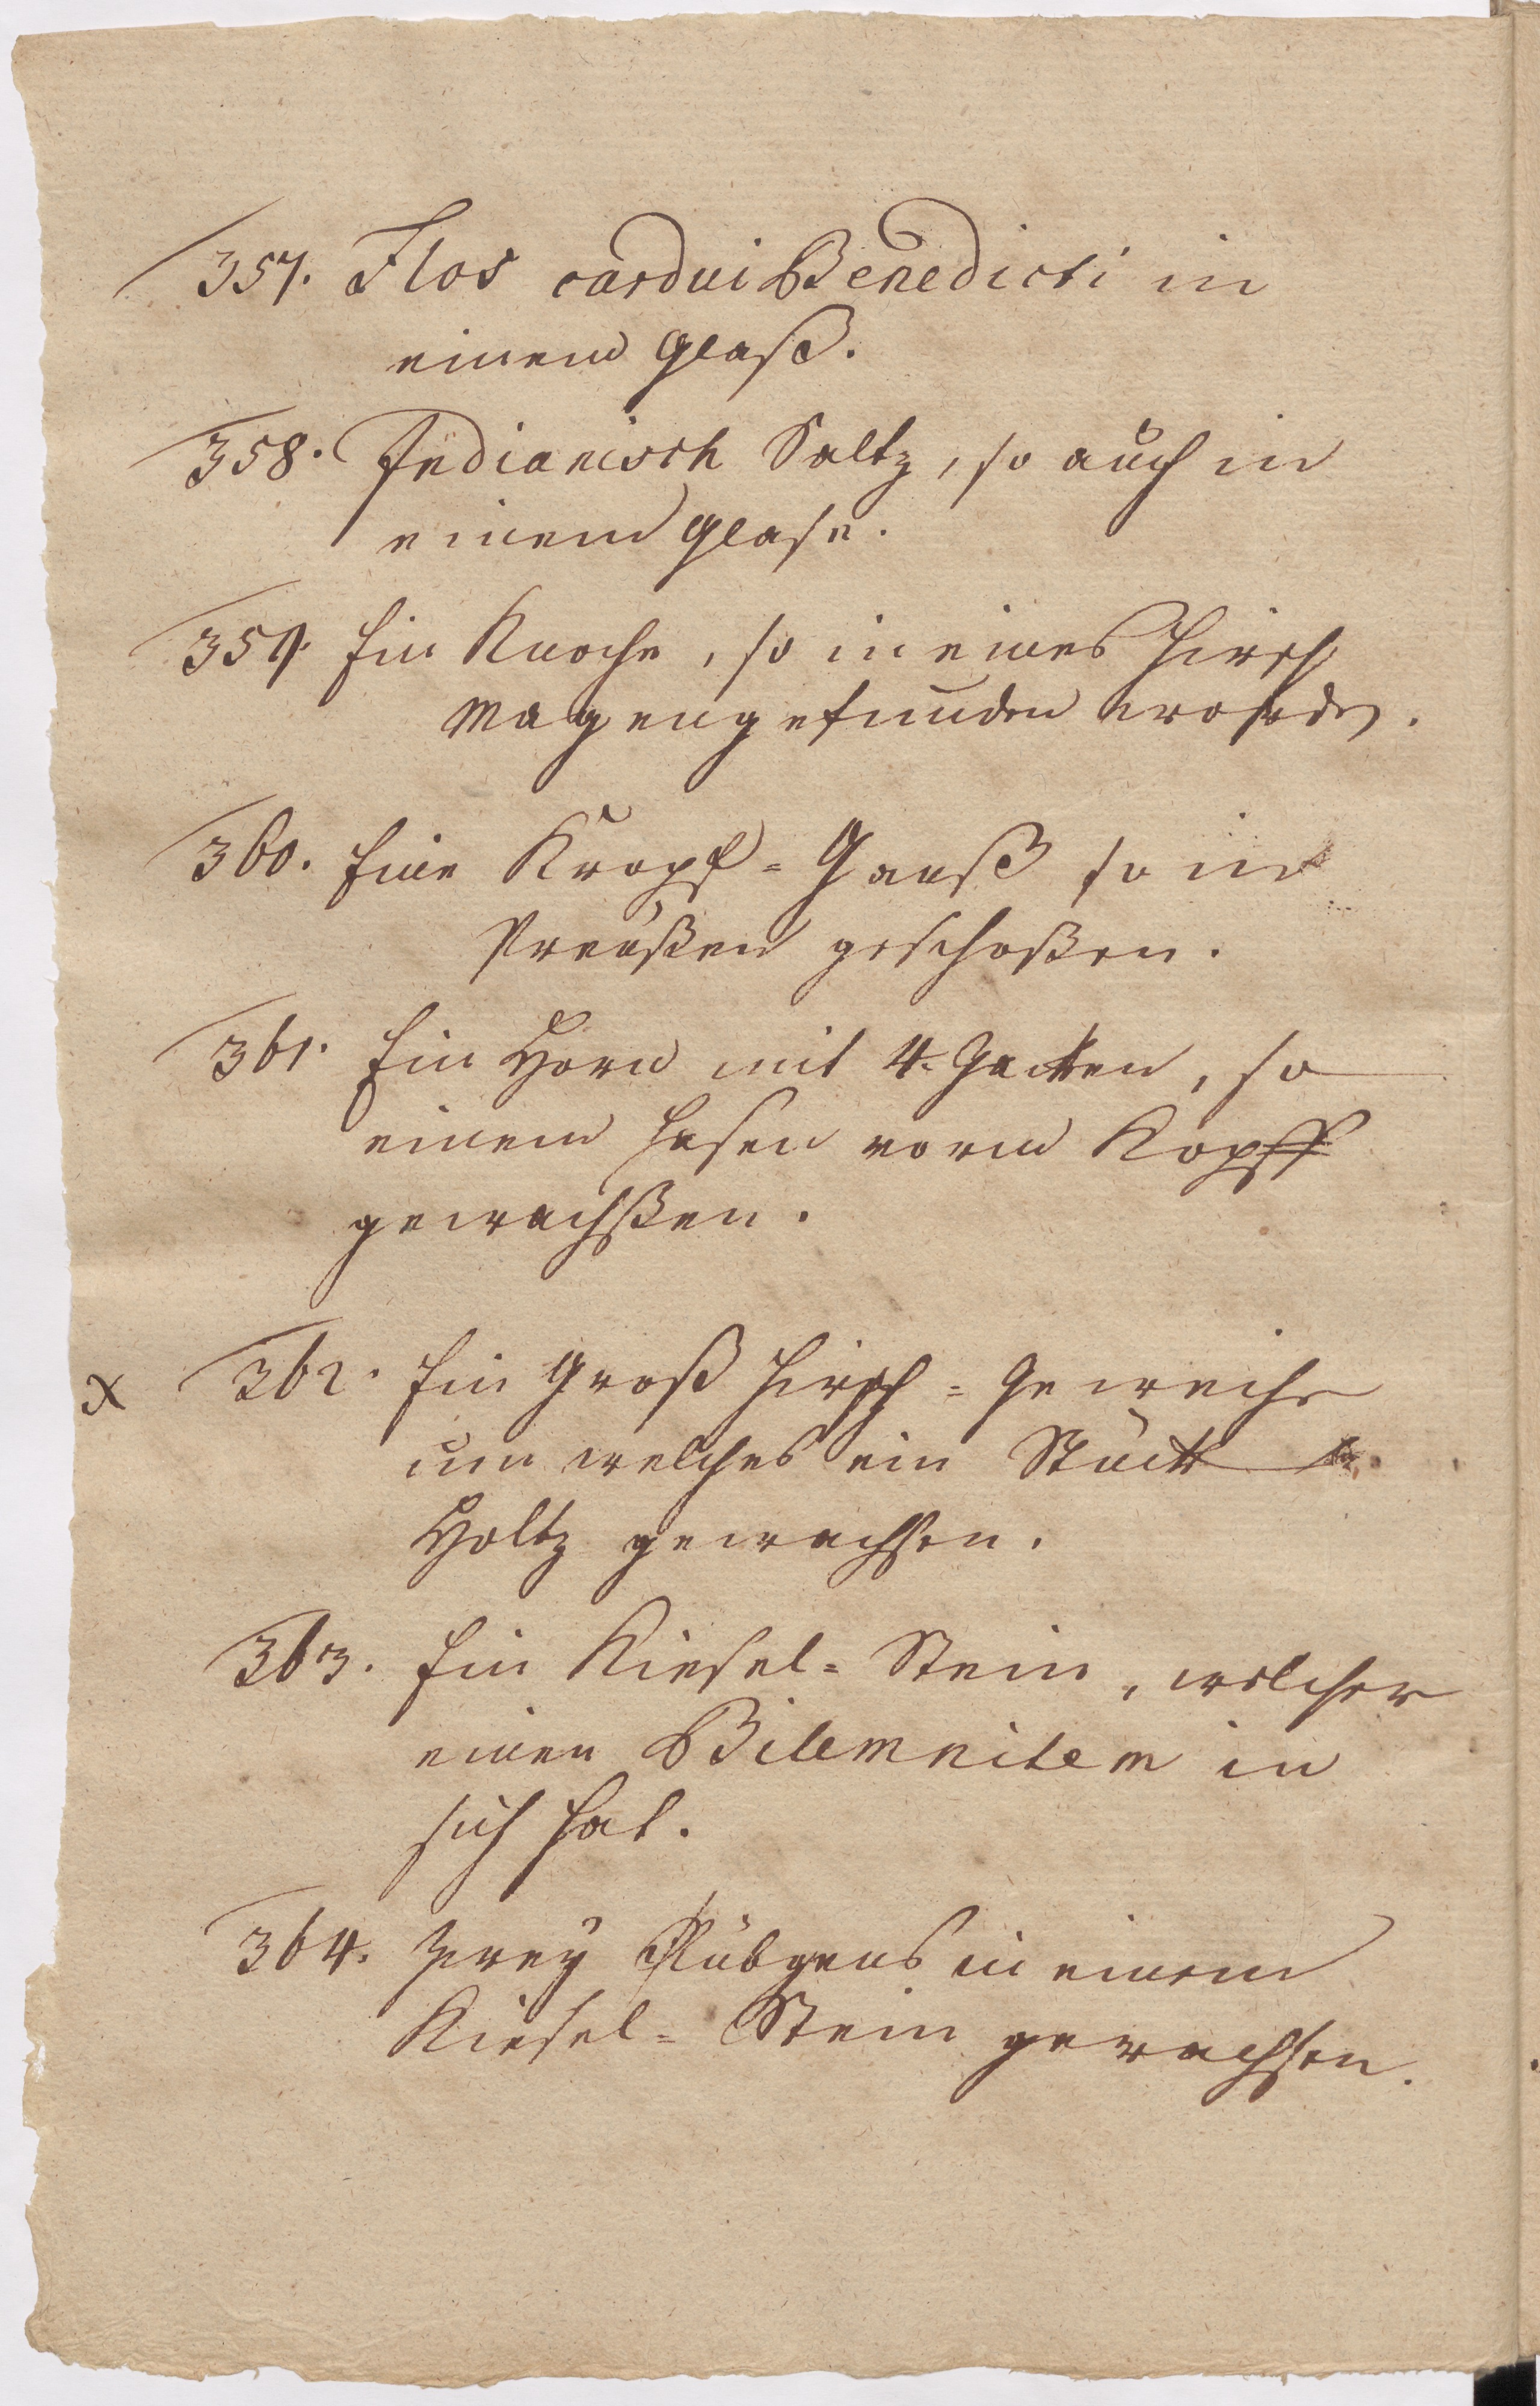 357. Flos cardui Benedicti in
einem Glaß.
358. Indianisch Saltz, so auch in
einem Glase.
359. Ein Knoche, so in eines Hirsch
Magen gefunden worden.
360. Eine Kropf=Ganß so in
Preußen geschoßen.
361. Ein Horn mit 4. Zacken, so
einem Hasen vorm Kopff
gewachßen.
x 362. Ein Groß Hirsch=Geweihe
um welches ein Stück
Holtz gewachsen.
363. Ein Kiesel=Stein, welcher
einen Bilemnitem in
sich hat.
364. Zwey Rübgens in einem
Kiesel=Stein gewachsen.